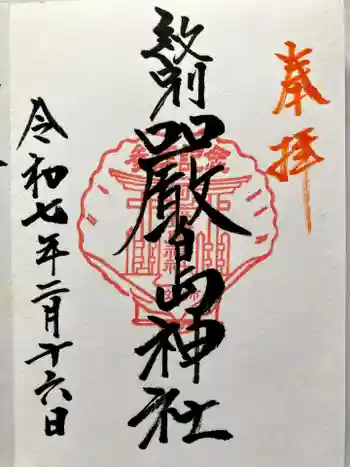 奉拝
紋別
厳島神社
令和七年二月十六日